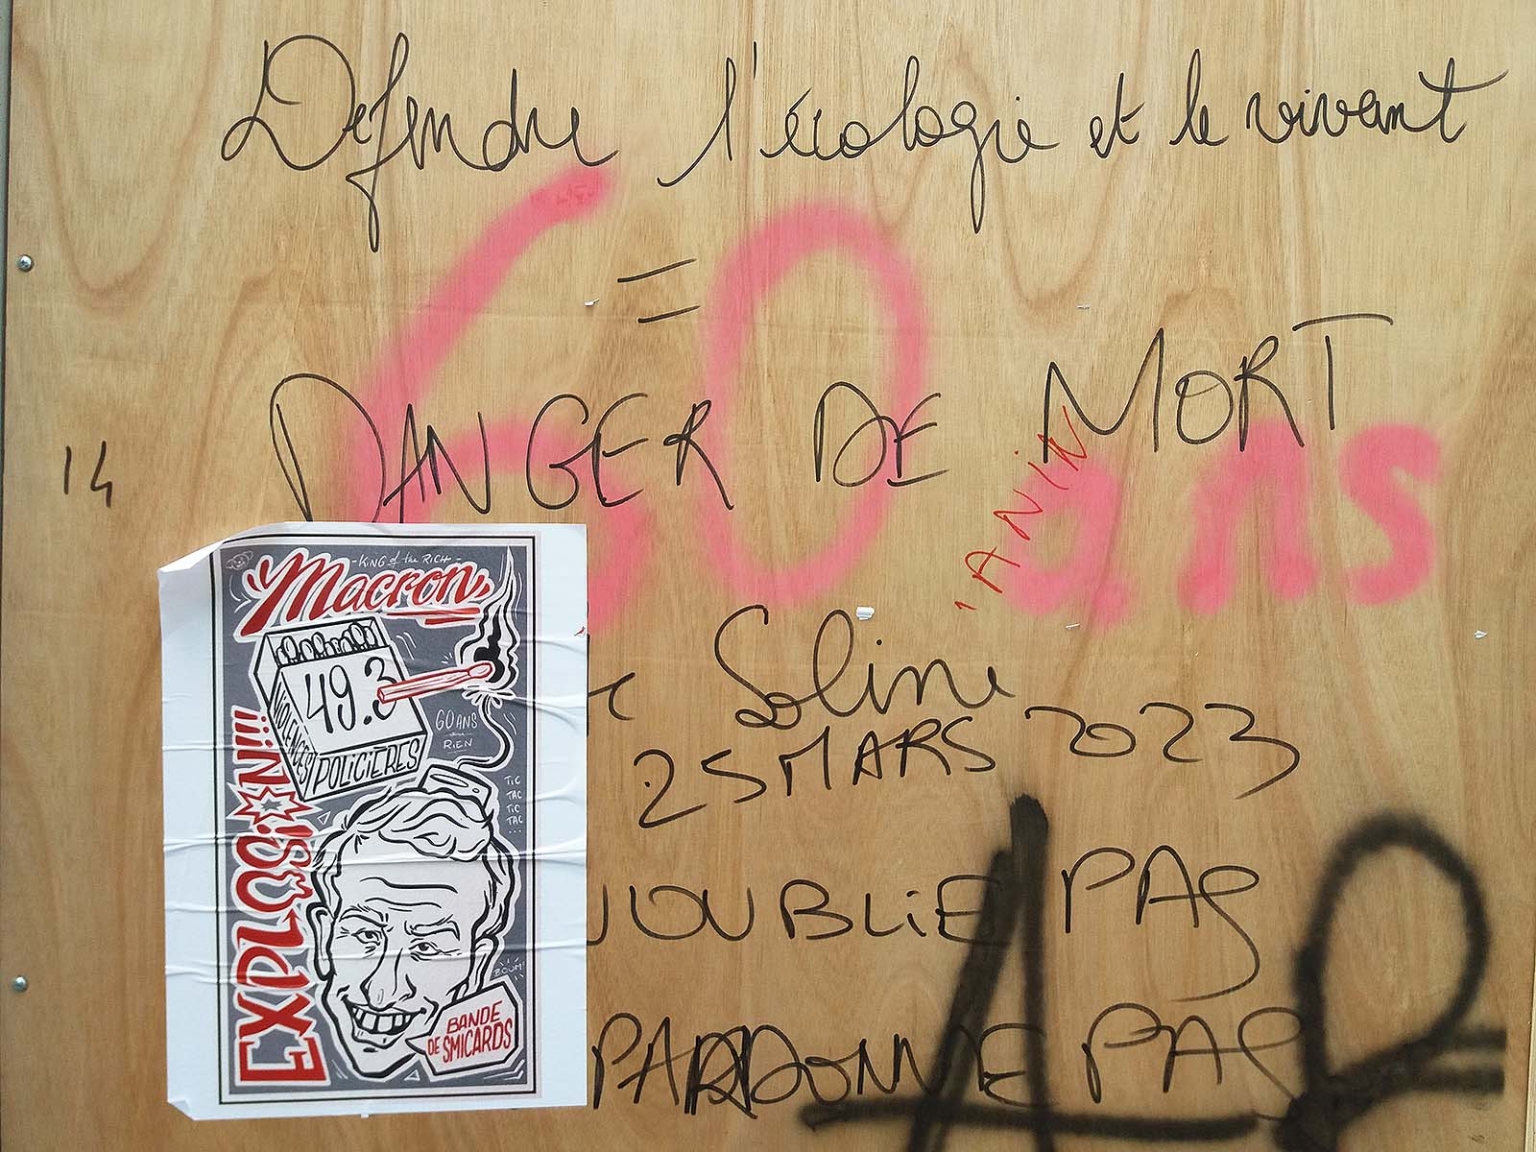 Defendre l'écologie et le vivant
=
DANGER DE MORT
60 ans
14
ANIN
Soline
25 MARS 2023
OUBLIE PAS
PARDONNE PAS
-KING of the RICH-
Macron
49.3
VIOLENCES POLICIÈRES
60 ANS
RIEN
TIC
TAC
TIC
TAC
...
EXPLOSION!!!
BOUM!
BANDE
DE SMICARDS